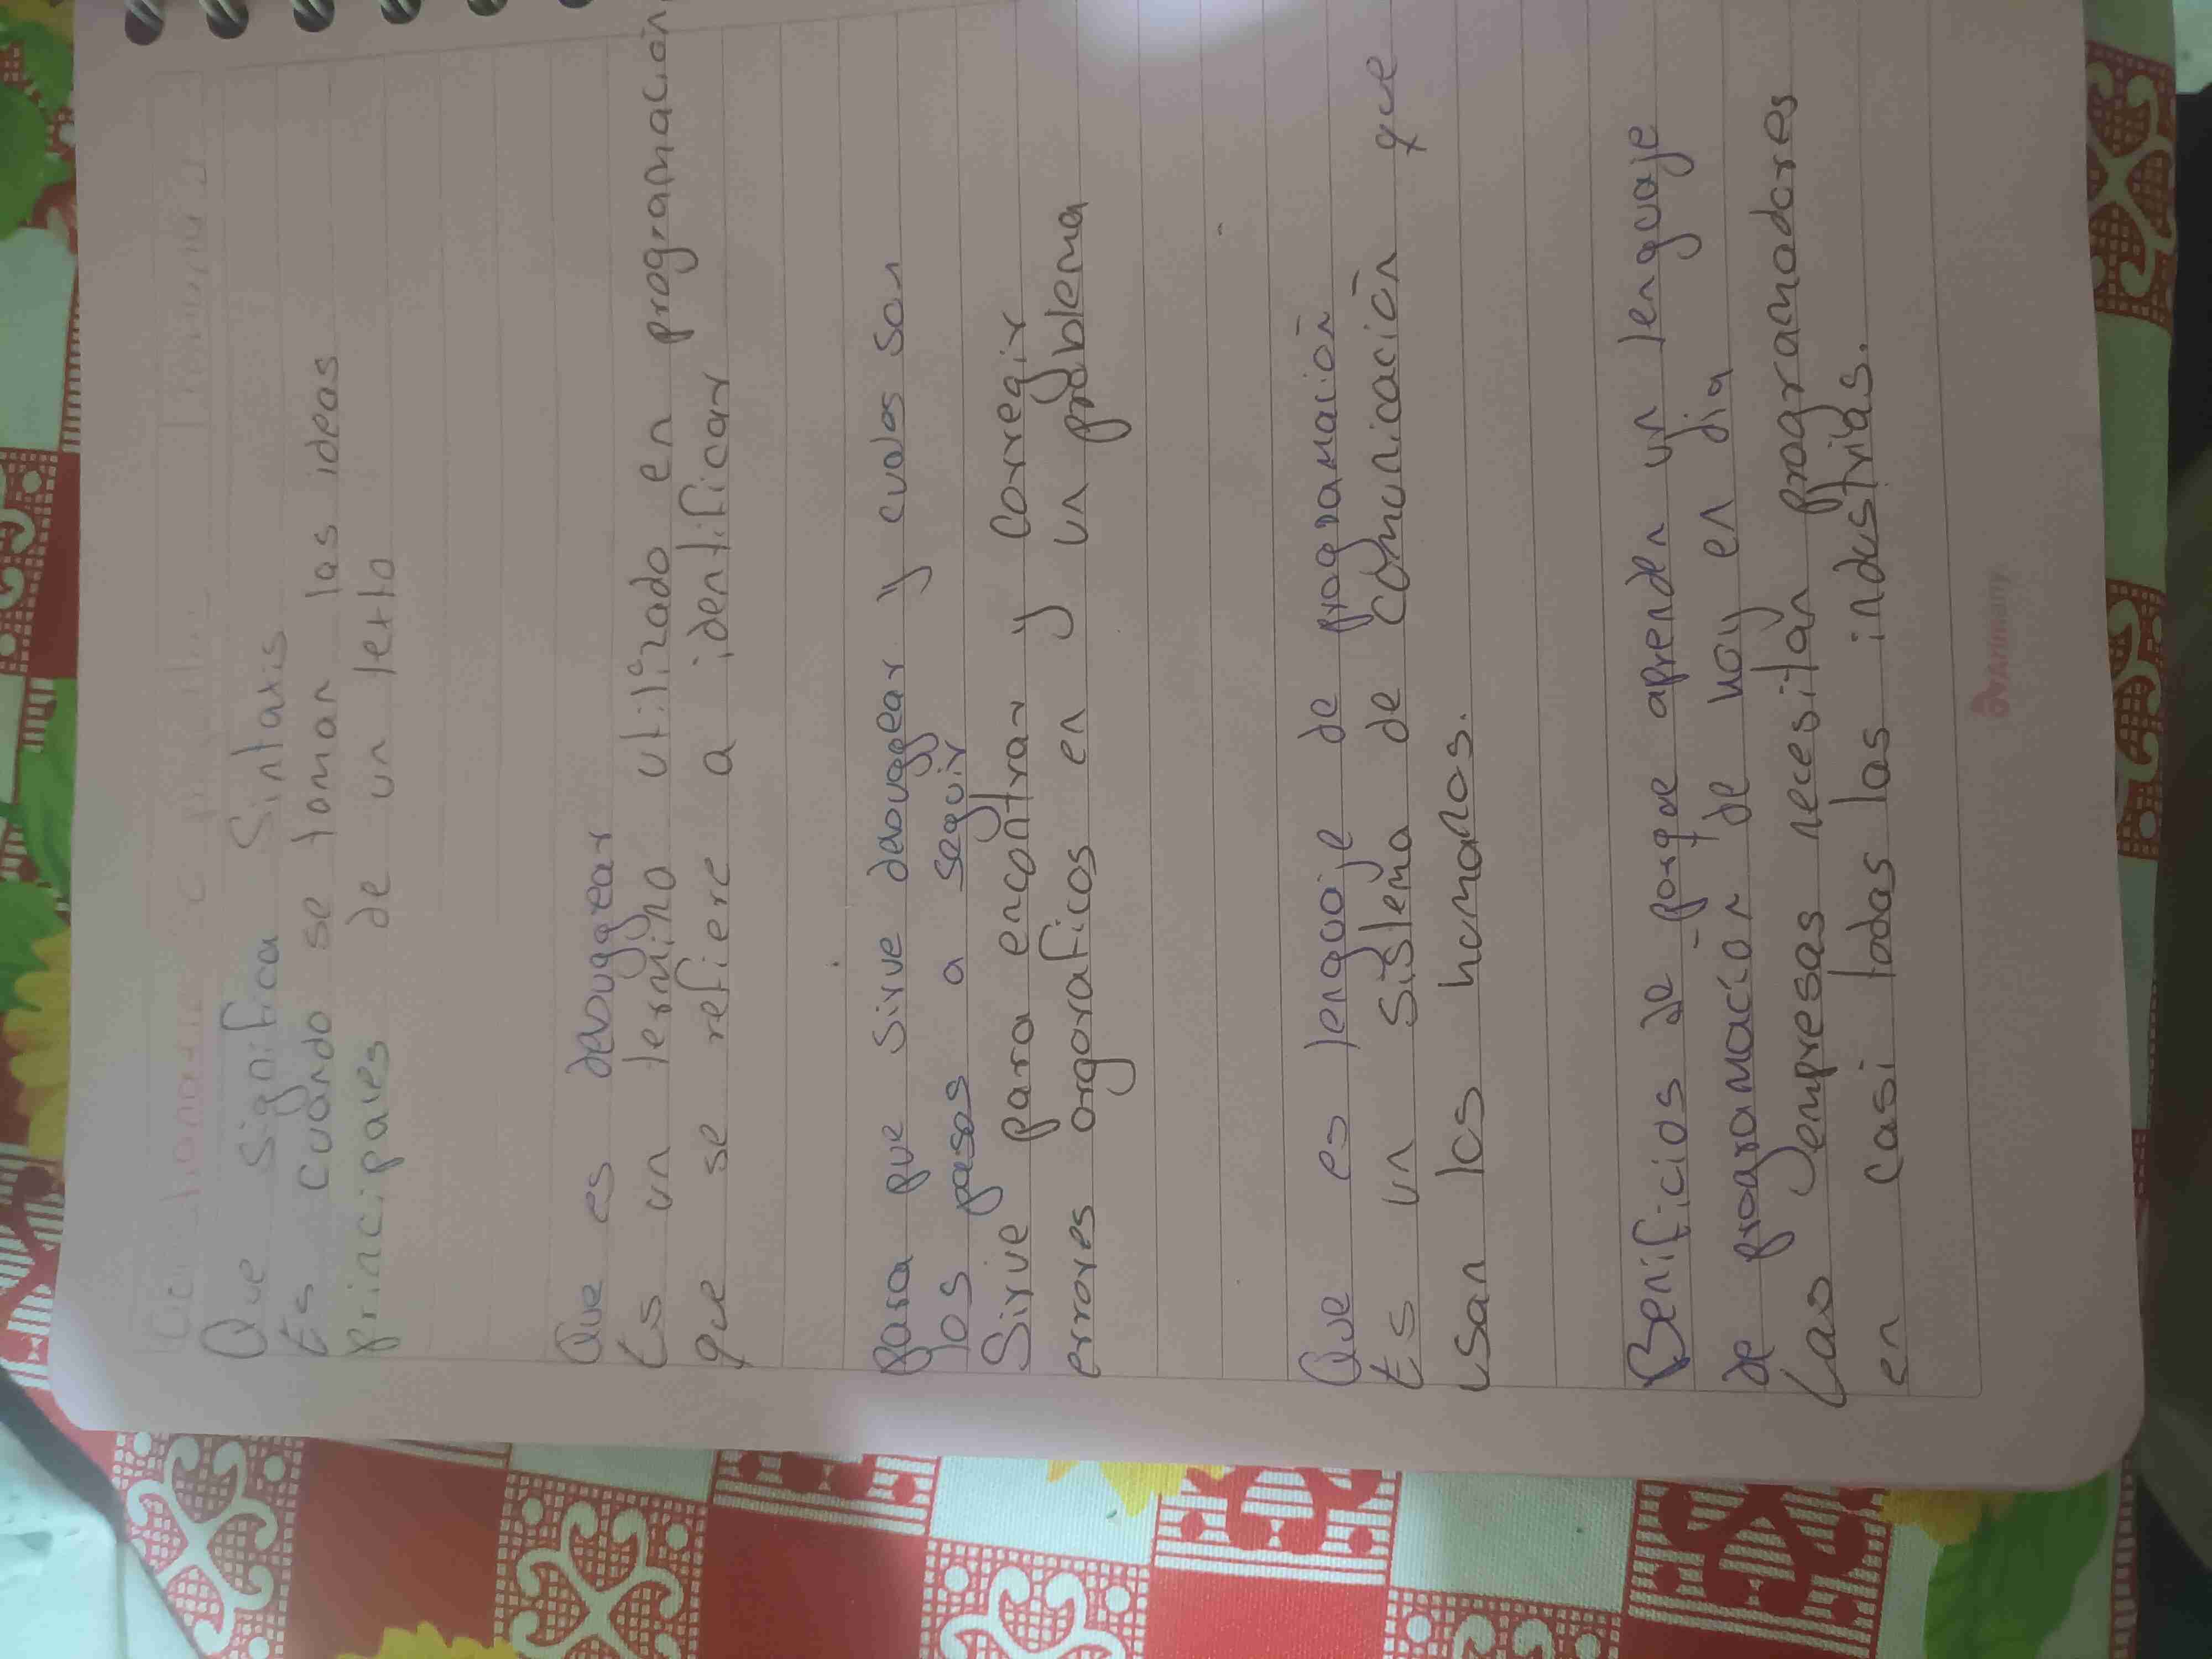 Que Significa Sintaxis
Es cuando se toman las ideas
principales de un texto
Que es debuggear
Es un termino utilizado en programación
que se refiere a identificar
Para que sirve debuggear y cuales son
los pasos a seguir
Sirve para encontrar y corregir
errores orgoraficos en un problema
Que es lenguaje de programación
Es un sistema de comunicación que
usan los humanos.
Benificios de porque aprender un lenguaje
de programacion de hoy en dia
Las empresas necesitan programadores
en casi todas las industrias.